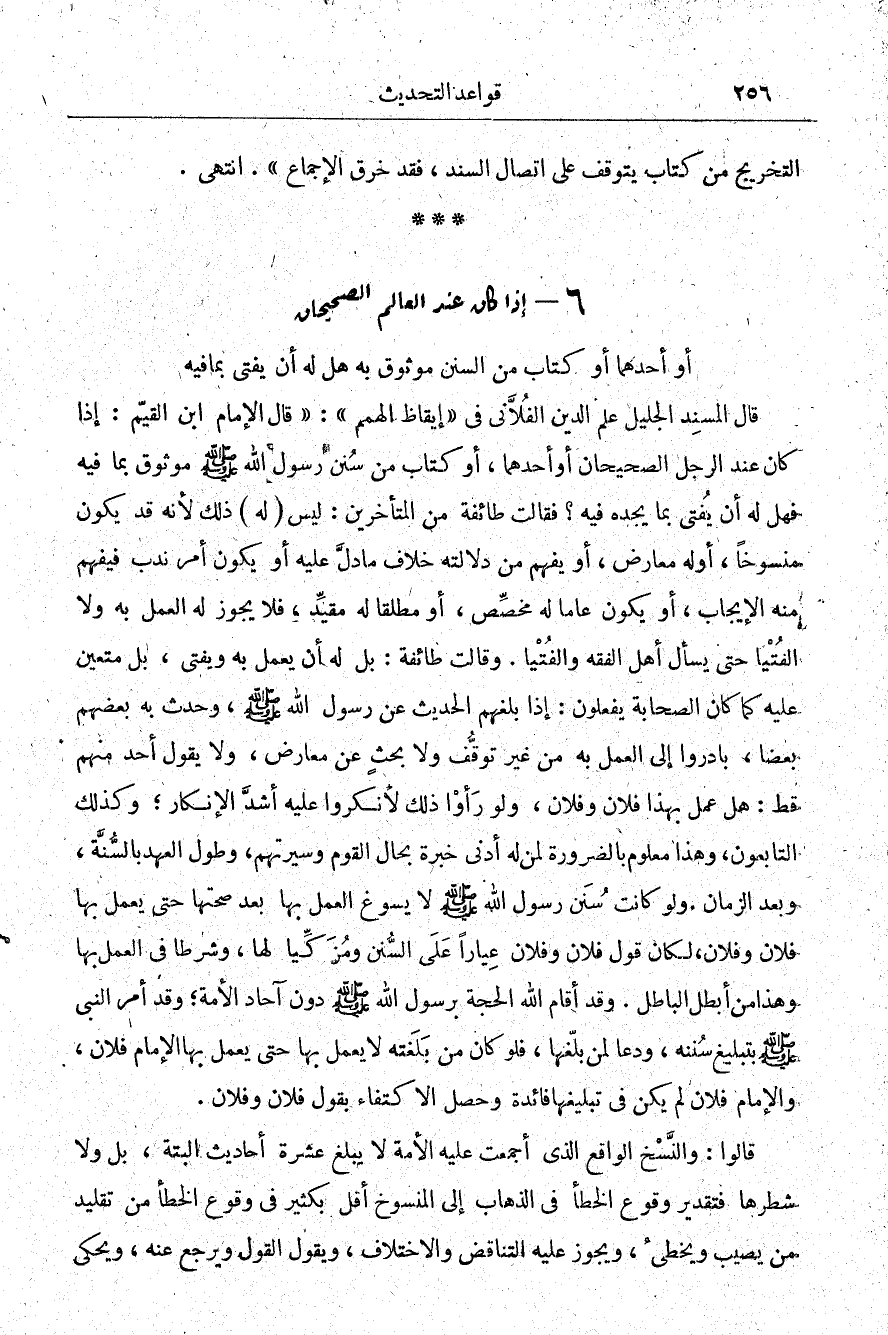 ٢٥٦ قواعد التحديث
التخريج من كتاب يتوقف على اتصال السند ، فقد خرق الإجماع » . انتهى .
***
٦ — إذا كان عند العالم الصحيحان
أو أحدهما أو كتاب من السنن موثوق به هل له أن يفتى بمافيه
قال المسنِد الجليل علم الدين الفُلاَّنى فى «إيقاظ الهمم » : « قال الإمام ابن القيّم : إذا
كان عند الرجل الصحيحان أوأحدهما ، أو كتاب من سُنن رسول الله ﷺ موثوق بما فيه
فهل له أن يُفتى بما يجده فيه ؟ فقالت طائفة من المتأخرين : ليس ( له ) ذلك لأنه قد يكون
منسوخاً ، أوله معارض ، أو يفهم من دلالته خلاف مادلَّ عليه أو يكون أمر ندب فيفهم
منه الإيجاب ، أو يكون عاما له مخصِّص ، أو مطلقا له مقيِّد ، فلا يجوز له العمل به ولا
الفُتْيا حتى يسأل أهل الفقه والفُتْيا . وقالت طائفة : بل له أن يعمل به ويفتى ، بل متعين
عليه كما كان الصحابة يفعلون : إذا بلغهم الحديث عن رسول الله ﷺ ، وحدث به بعضهم
بعضا ، بادروا إلى العمل به من غير توقُّف ولا بحثٍ عن معارض ، ولا يقول أحد منهم
قط : هل عمل بهذا فلان وفلان ، ولو رَأَوْا ذلك لأنكروا عليه أشدَّ الإنكار ؛ وكذلك
التابعون، وهذا معلوم بالضرورة لمن له أدنى خبرة بحال القوم وسيرتهم، وطول العهد بالسُّنَّة ،
وبعد الزمان . ولو كانت سُنَن رسول الله ﷺ لا يسوغ العمل بها بعد صحتها حتى يعمل بها
فلان وفلان، لكان قول فلان وفلان عِياراً عَلَى السُّنن ومُزَكِّيا لها ، وشرطا فى العمل بها
وهذا من أبطل الباطل . وقد أقام الله الحجة برسول الله ﷺ دون آحاد الأمة؛ وقد أمر النبى
ﷺ بتبليغ سُننه ، ودعا لمن بلّغها ، فلو كان من بَلَغَته لايعمل بها حتى يعمل بها الإمام فلان ،
والإمام فلان لم يكن فى تبليغها فائدة وحصل الاكتفاء بقول فلان وفلان .
قالوا : والنَّسْخ الواقع الذى أجمعت عليه الأمة لا يبلغ عشرة أحاديث البتة ، بل ولا
شطرها فتقدير وقوع الخطأ فى الذهاب إلى المنسوخ أقل بكثير فى وقوع الخطأ من تقليد
من يصيب ويخطىء ، ويجوز عليه التناقض والاختلاف ، ويقول القول ويرجع عنه ، ويحكى